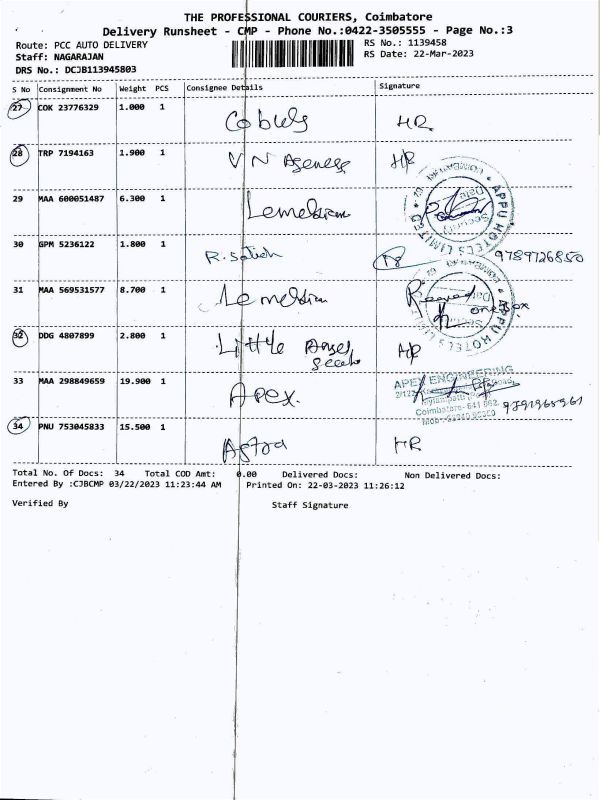 THE PROFESSIONAL COURIERS, Coimbatore
Delivery Runsheet - CMP - Phone No.:0422-3505555 - Page No.:3
Route: PCC AUTO DELIVERY
RS No.: 1139458
Staff: NAGARAJAN
RS Date: 22-Mar-2023
DRS No.: DCJB113945803
S No Consignment No Weight PCS Consignee Details Signature
27 COK 23776329 1.000 1 HR
28 TRP 7194163 1.900 1 V N HR
29 MAA 600051487 6.300 1 Lemeksiam
APPU HOTELS LIMITED
Security
Date
30 GPM 5236122 1.800 1 R. Satish 9789726850
31 MAA 569531577 8.700 1 Received one Box
APPU HOTELS LIMITED
Security
Date
32 DDG 4807899 2.800 1 Little HR
33 MAA 298849659 19.900 1 Apex.
APEX ENGINEERING
Coimbatore - 641 062
34 PNU 753045833 15.500 1 Astra HR
Total No. Of Docs: 34 Total COD Amt: 0.00 Delivered Docs: Non Delivered Docs:
Entered By :CJBCMP 03/22/2023 11:23:44 AM Printed On: 22-03-2023 11:26:12
Verified By Staff Signature